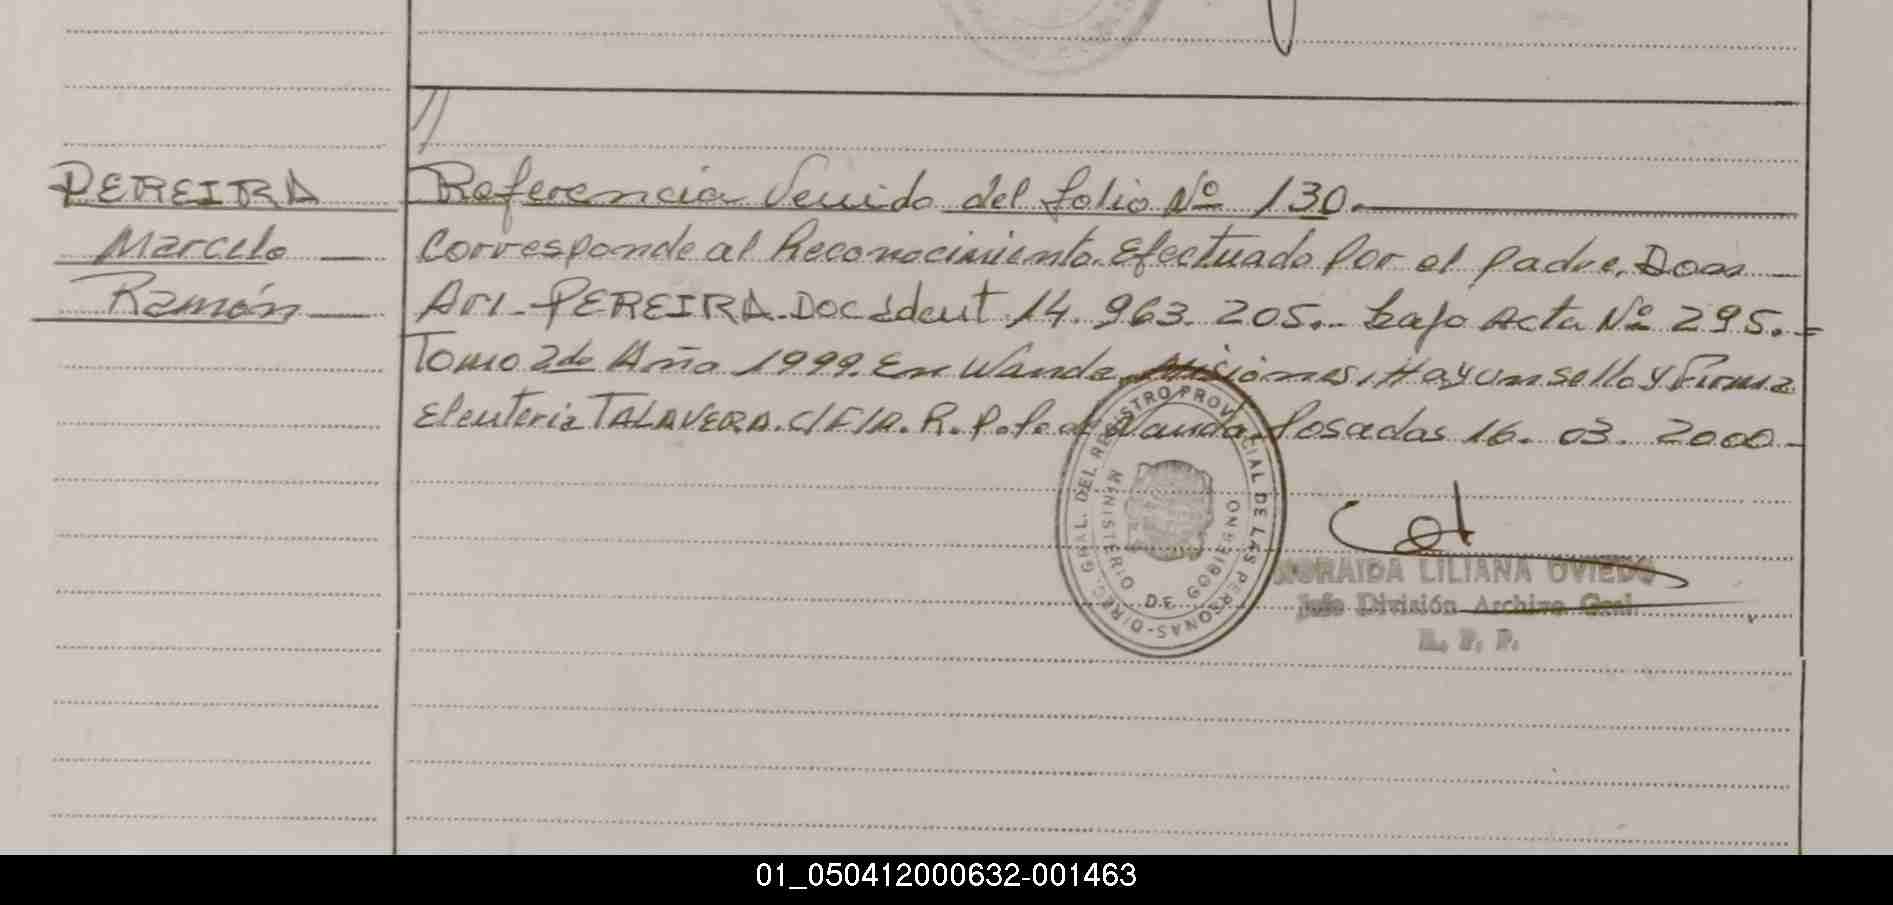 //
PEREIRA
Marcelo
Ramón
Referencia Venido del folio Nº 130.
Corresponde al Reconocimiento. Efectuado Por el padre. Doas
Ari - PEREIRA. Doc Ident 14. 963. 205. - bajo Acta Nº 295. =
Tomo 2do Año 1999. En Wanda, Misiones, Hay un sello y Firma
Eleuteria TALAVERA. C/F/A. R. P. Wanda. Posadas 16. 03. 2000
DIREC. GRAL. DEL REGISTRO PROVINCIAL DE LAS PERSONAS-
MINISTERIO DE GOBIERNO
NORAIDA LILIANA OVIEDO
Jefe División Archivo Gral.
R. P. P.
01_050412000632-001463